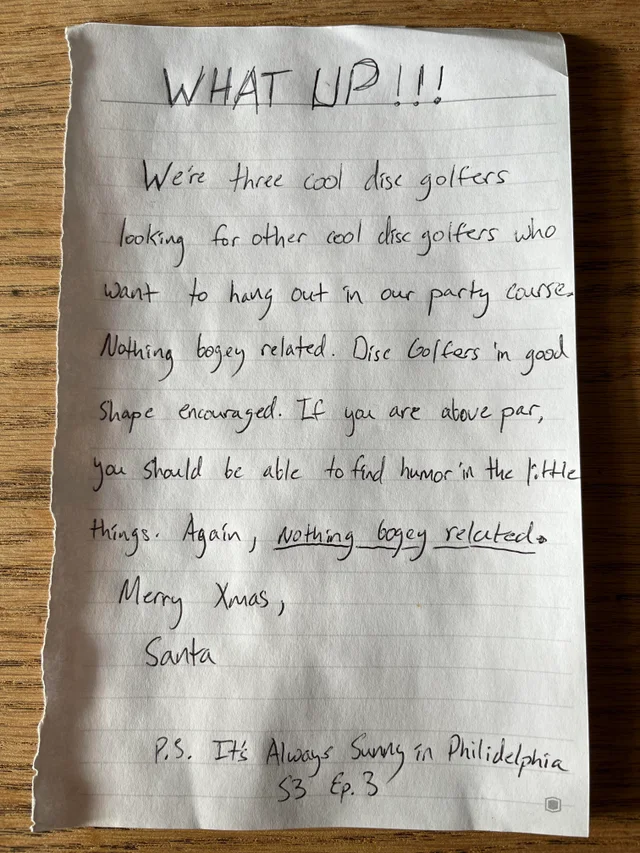 WHAT UP!!!
We're three cool disc golfers
looking for other cool disc golfers who
want to hang out in our party course.
Nothing bogey related. Disc Golfers in good
shape encouraged. If you are above par,
you should be able to find humor in the little
things. Again, Nothing bogey related.
Merry Xmas,
Santa
P.S. It's Always Sunny in Philidelphia
S3 Ep. 3